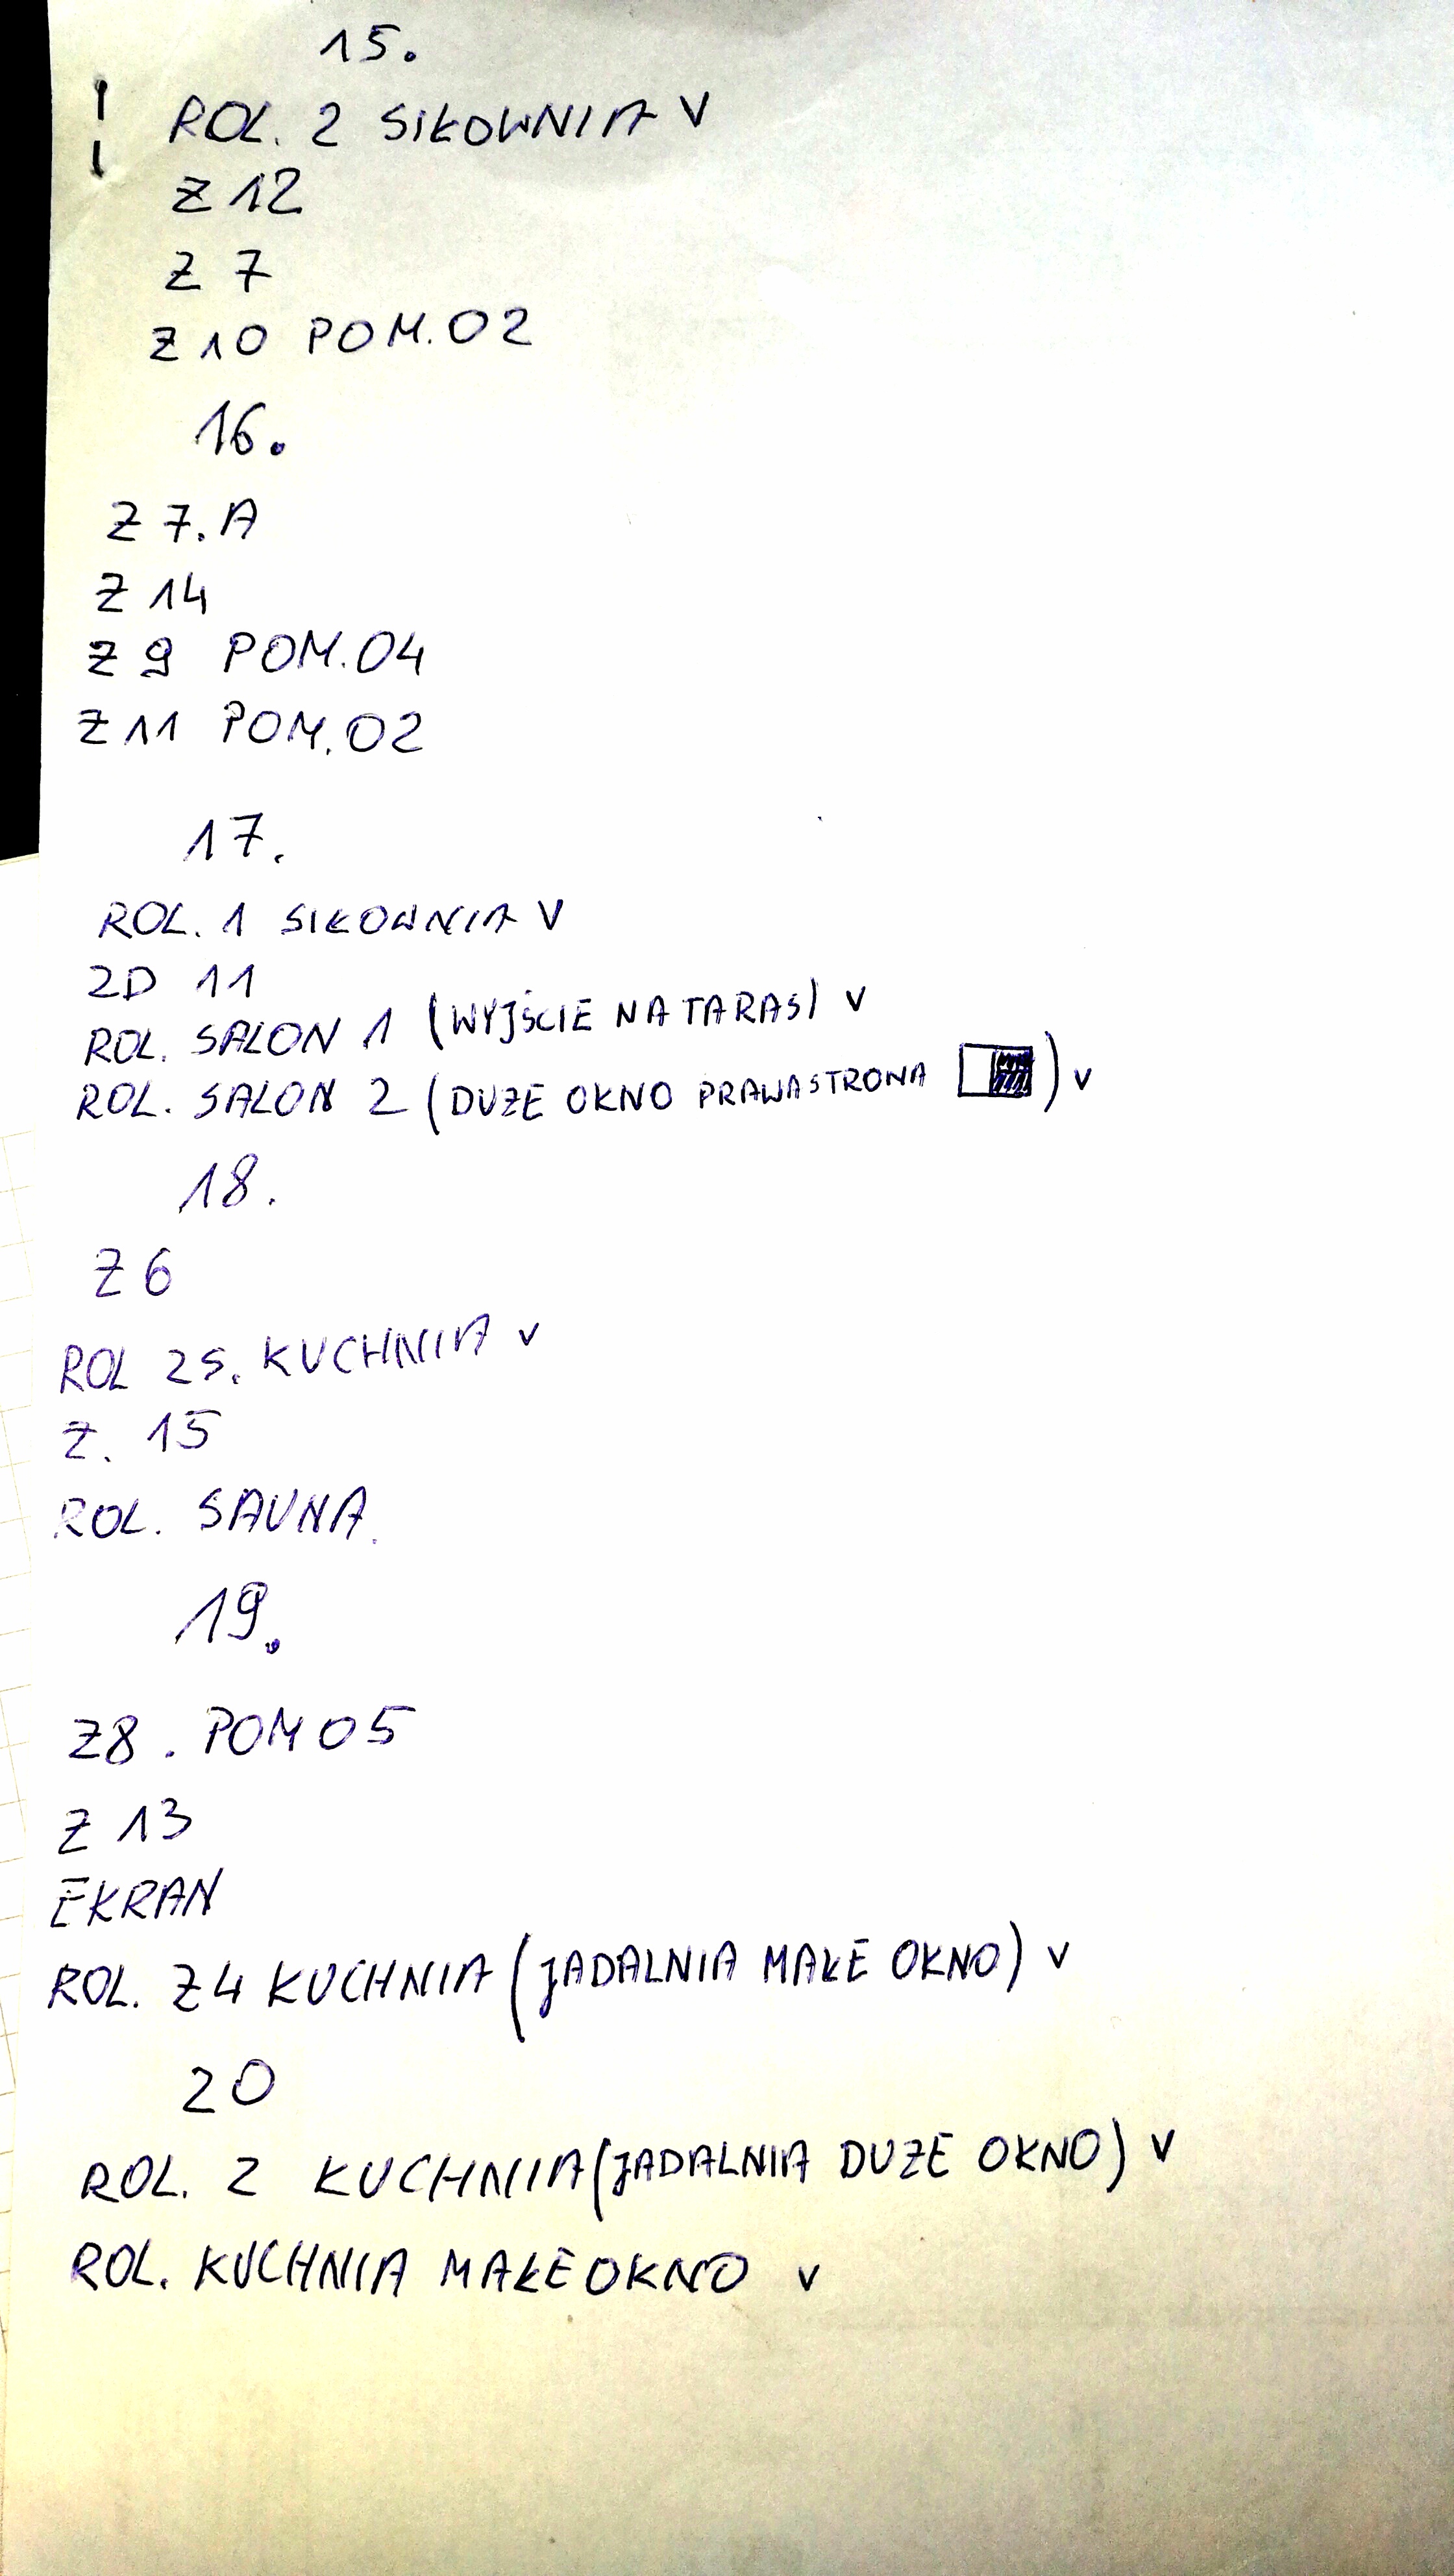 15.
ROL. 2 SIŁOWNIA V
Z 12
Z 7
Z 10 POM. 02
16.
Z 7. A
Z 14
Z 9 POM. 04
Z 11 POM. 02
17.
ROL. 1 SIŁOWNIA V
2D 11
ROL. SALON 1 (WYJŚCIE NA TARAS) V
ROL. SALON 2 (DUŻE OKNO PRAWA STRONA ) V
18.
Z 6
ROL 25. KUCHNIA V
Z. 15
ROL. SAUNA.
19.
Z8. POM 05
Z 13
EKRAN
ROL. Z4 KUCHNIA (JADALNIA MAŁE OKNO) V
20
ROL. 2 KUCHNIA (JADALNIA DUŻE OKNO) V
ROL. KUCHNIA MAŁE OKNO V